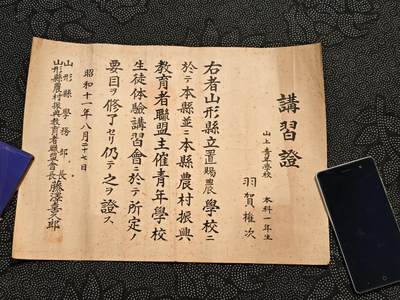 講習證
山上青年學校 本科一年生
羽賀権次
右者山形縣立置賜農學校ニ
於テ本縣並ニ本縣農村振興
教育者聯盟主催青年學校
生徒体驗講習會ニ於テ所定ノ
要目ヲ修了セリ仍テ之ヲ證ス
昭和十一年八月二十七日
山形縣學務部長
山形縣農村振興教育者聯盟會長 藤澤喜久郎